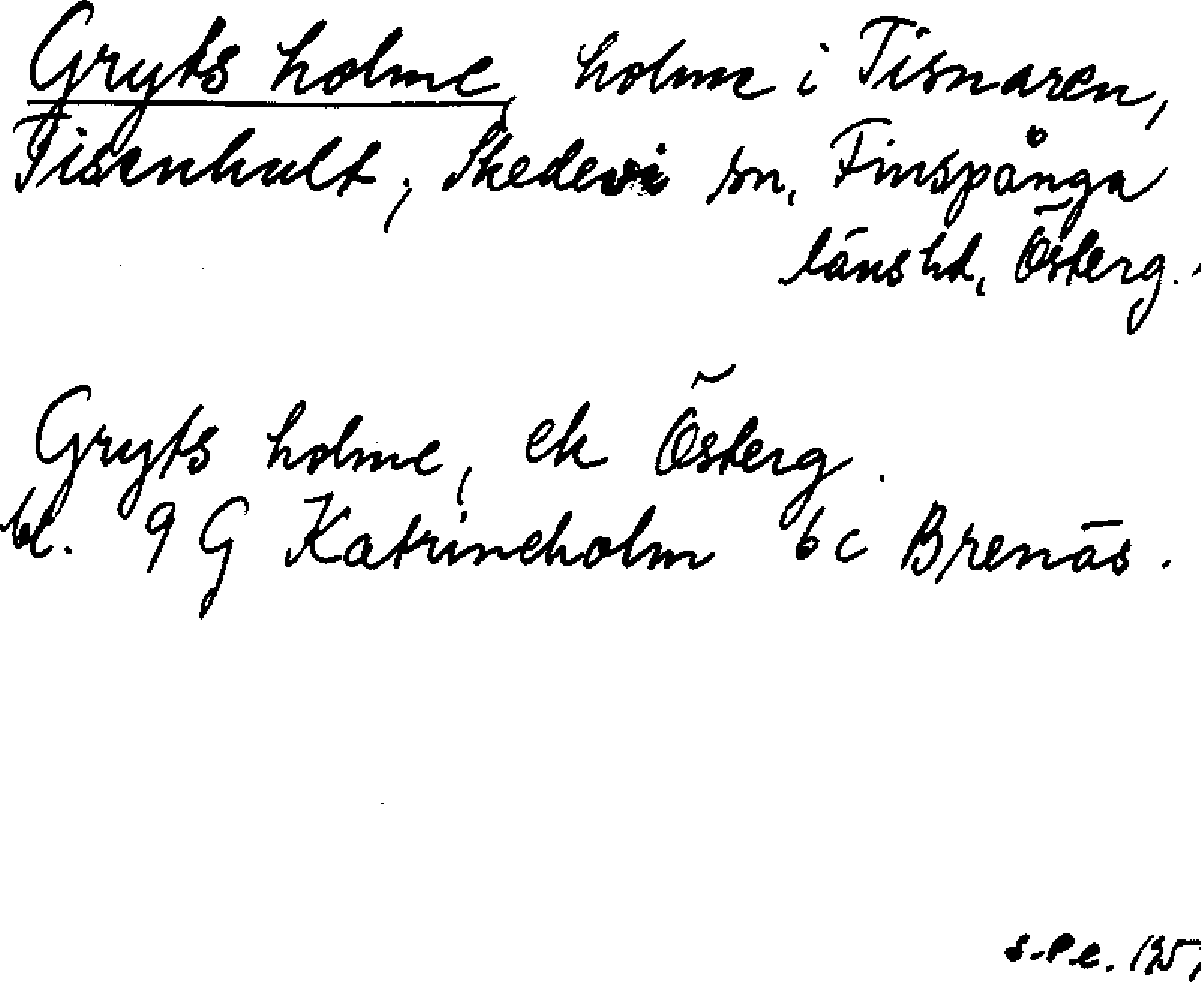 Gryts holme, holme i Tisnaren,
Tisenhult, Skedevi sn, Finspånga
länshd, Österg.
Gryts holme, ek Österg.
bl. 9 G Katrineholm 6 c Brenäs.
S-P e.